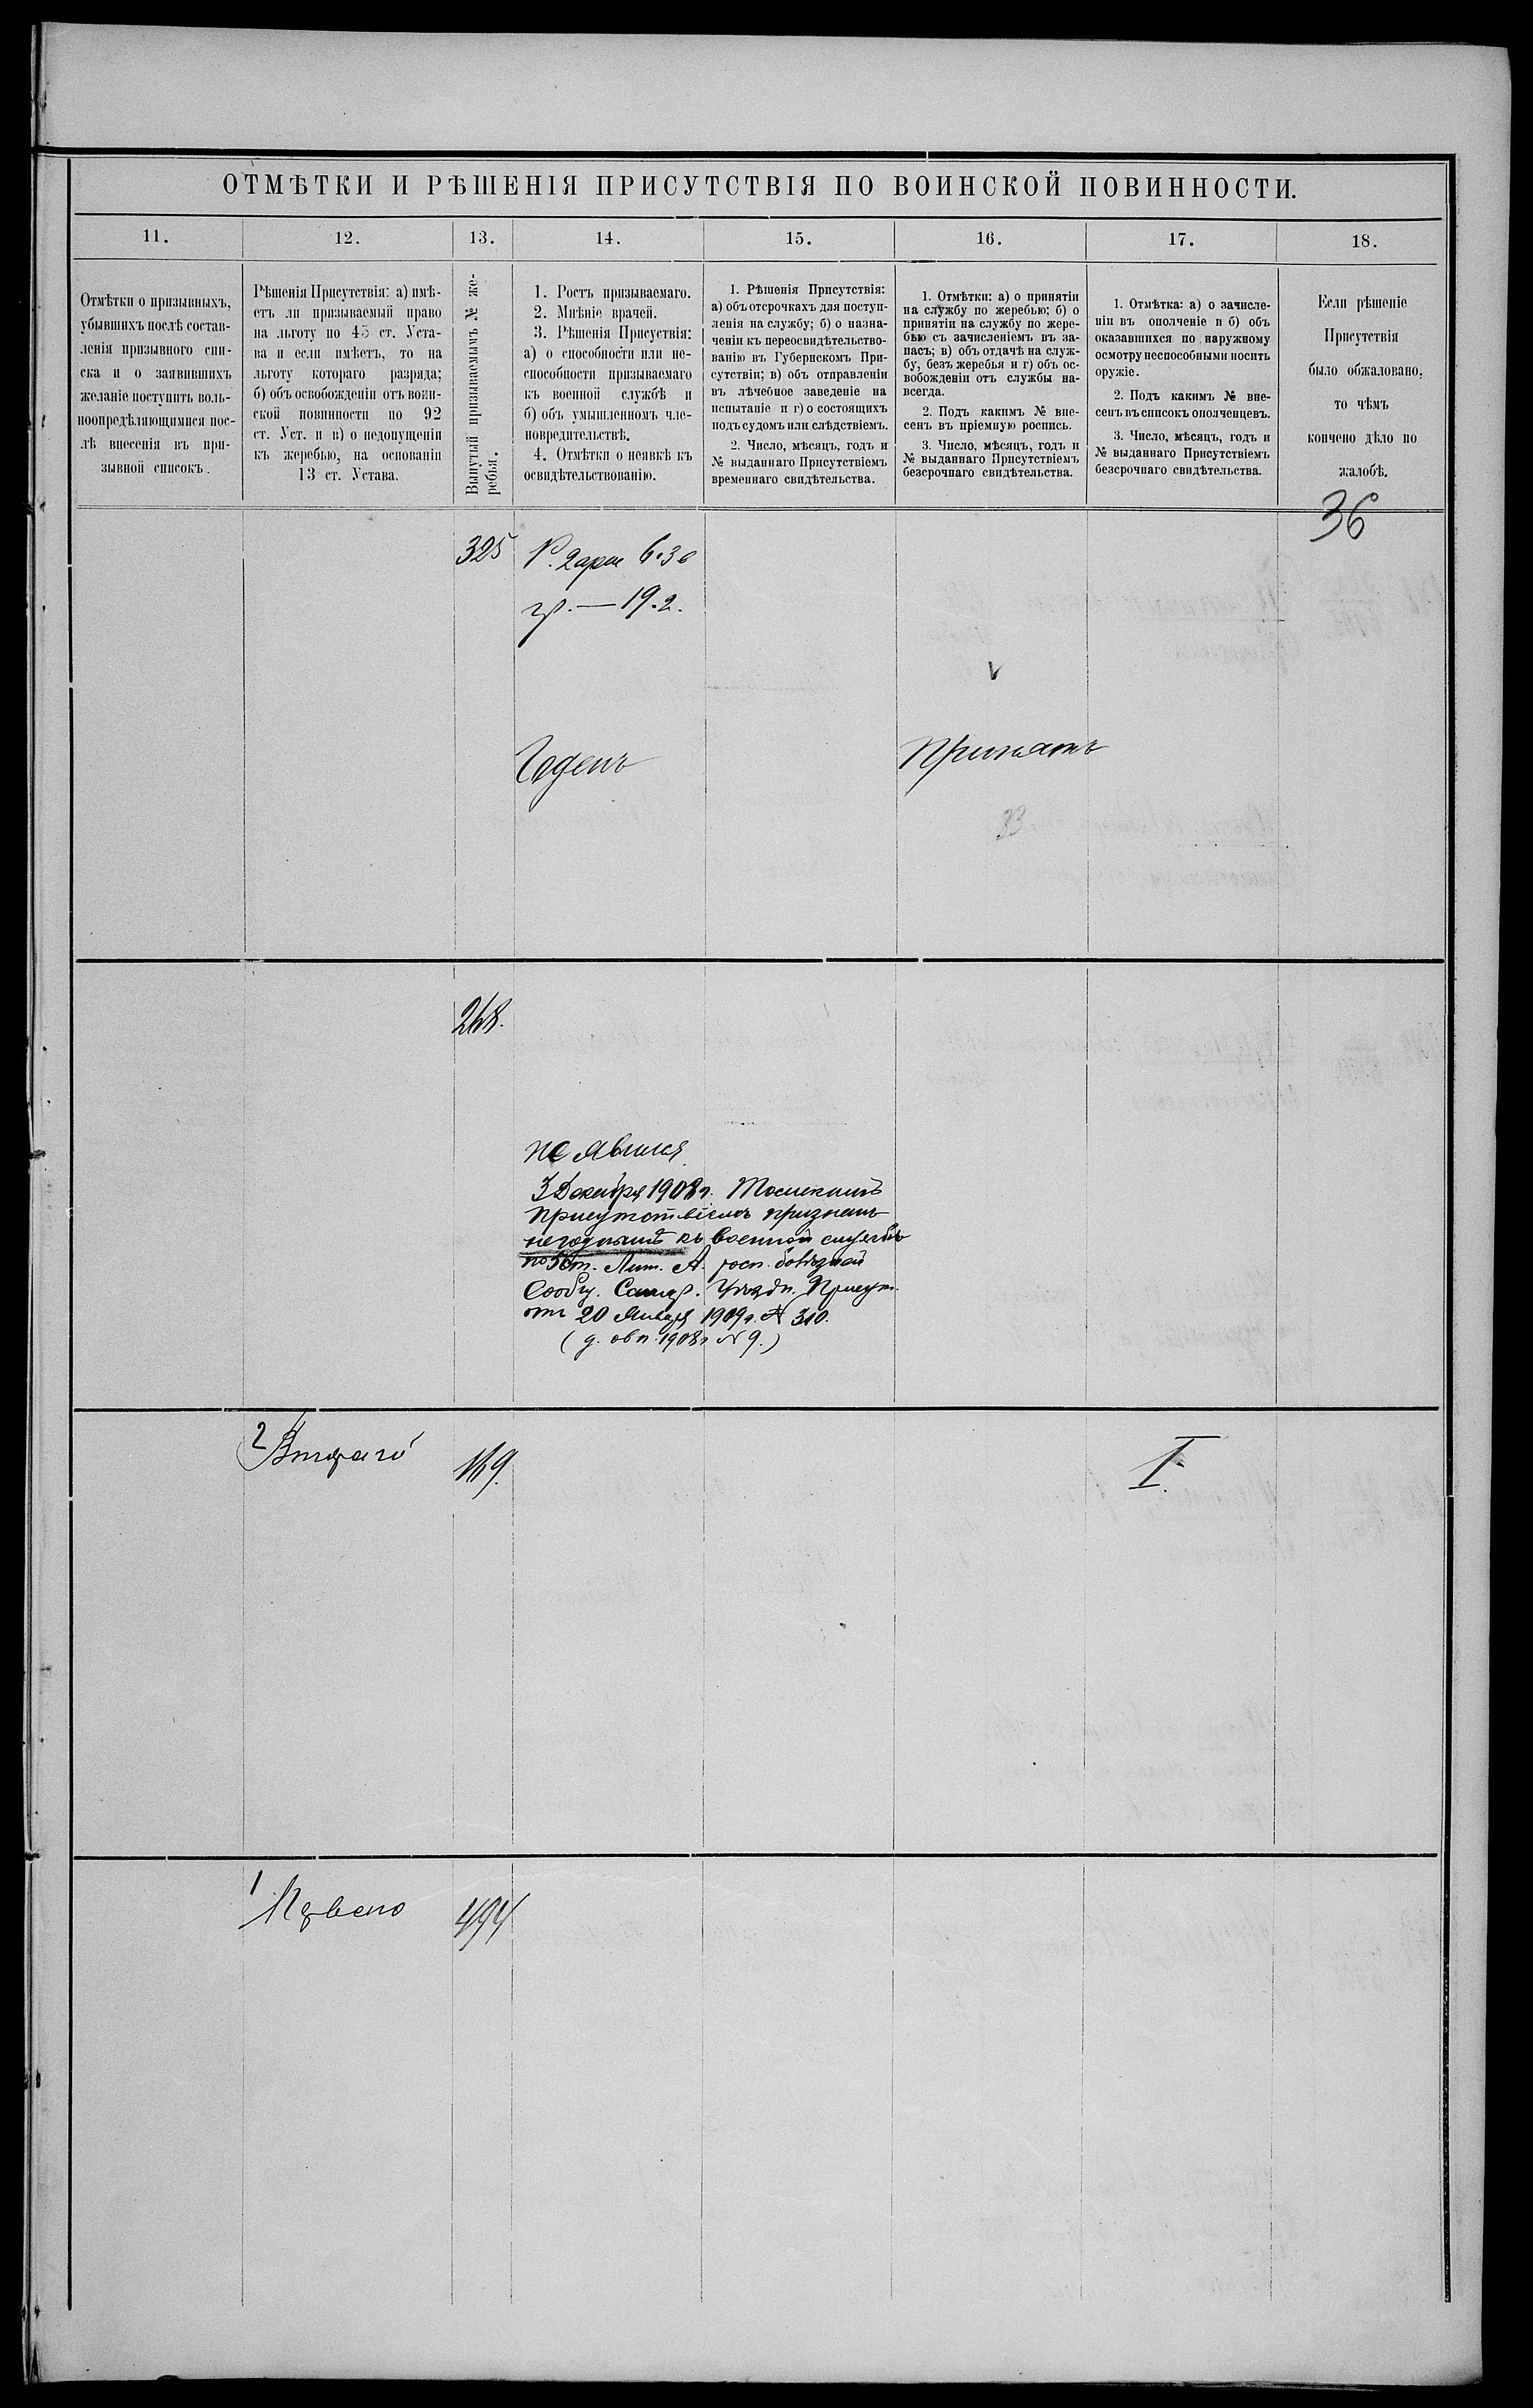 ОТМѢТКИ И РѢШЕНІЯ ПРИСУТСТВІЯ ПО ВОИНСКОЙ ПОВИННОСТИ.
11.
12.
13.
14.
15.
16.
17.
18.
Отмѣтки о призывныхъ,
убывшихъ послѣ состав-
ленія призывного спи-
ска и о заявившихъ
желаніе поступить воль-
ноопредѣляющимися пос-
лѣ внесенія въ при-
зывной списокъ.
Рѣшенія Присутствія: а) имѣ-
етъ ли призываемый право
на льготу по 45 ст. Уста-
ва и если имѣетъ, то на
льготу котораго разряда;
б) объ освобожденіи отъ воин-
ской повинности по 92
ст. Уст. и в) о недопущеніи
къ жеребью, на основаніи
13 ст. Устава.
Вынутый призываемымъ № же-
ребья.
1. Ростъ призываемаго.
2. Мнѣніе врачей.
3. Рѣшенія Присуствія:
а) о способности или не-
способности призываемаго
къ военной службѣ и
б) объ умышленномъ чле-
новредительствѣ.
4. Отмѣтки о неявкѣ къ
освидѣтельствованію.
1. Рѣшенія Присутствія:
а) объ отсрочкахъ для поступ-
ленія на службу; б) о назна-
ченіи къ переосвидѣтельство-
ванію въ Губернскомъ При-
сутствіи; в) объ отправленіи
въ лѣчебное заведеніе на
испытаніе и г) о состоящихъ
подъ судомъ или слѣдствіемъ.
2. Число, мѣсяцъ, годъ и
№ выданнаго Присутствіемъ
временнаго свидѣтельства.
1. Отмѣтки: а) о принятіи
на службу по жеребью; б) о
принятіи на службу по жере-
бью съ зачисленіемъ въ за-
пасъ; в) объ отдачѣ на служ-
бу, безъ жеребья и г) объ ос-
вобожденіи отъ службы на-
всегда.
2. Подъ какимъ № вне-
сенъ въ пріемную роспись.
3. Число, мѣсяцъ, годъ и
№ выданнаго Присутствіемъ
безсрочнаго свидѣтельства.
1. Отмѣтка: а) о зачисле-
ніи въ ополченіе и б) объ
оказавшихся по наружному
осмотру неспособными носить
оружіе.
2. Подъ какимъ № вне-
сенъ въ списокъ ополченцевъ.
3. Число, мѣсяцъ, годъ и
№ выданнаго Присутствіемъ
безсрочнаго свидѣтельства.
Если рѣшеніе
Присутствія
было обжаловано,
то чѣмъ
кончено дѣло по
жалобѣ.
36
325
Р. 2 арш 6.3в
гр. — 19.2.
Годенъ
Принятъ
33
268.
не явился
3 Декабря 1908 г. Томскимъ
Присутствіемъ признанъ
негоднымъ къ военной службѣ
по ст. Лит. А. росп. болѣзней
Сообщ. Самар. Уѣздн. Присут.
отъ 20 Января 1909 г. № 310.
1908 г № 9.)
2
Втораго
169.
I.
1
Перваго
494